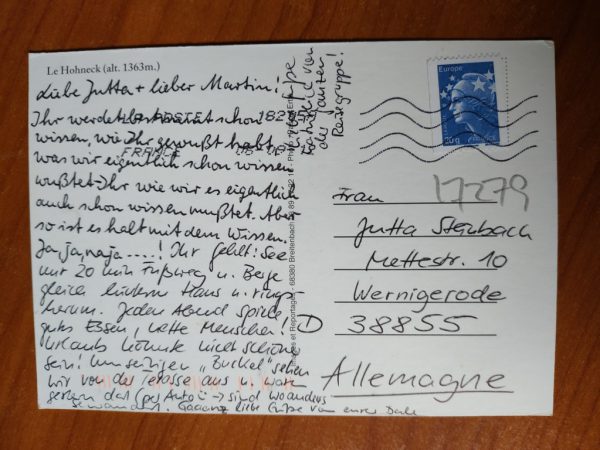 Le Hohneck (alt. 1363m.)
Liebe Jutta + lieber Martin!
Ihr werdet bestimmt schon
wissen, wie Ihr gewußt habt,
was wir eigentlich schon wissen
wußtet Ihr wie wir es eigentlich
auch schon wissen mußtet. Aber
so ist es halt mit dem Wissen.
Ja, ja, naja ....! Ihr fehlt! See
nur 20 min Fußweg u. Berge
gleich hinterm Haus u. rings
herum. Jeden Abend Spiele
gutes Essen, nette Menschen!
Urlaub könnte nicht schöner
sein! "Buckel" sehen
wir von der Terasse aus u. waren
gestern dort (per Auto) → sind woanders
gewandert. Gaaanz liebe Grüße von eurer
Grüße
natürlich von
der ganzen
Reisegruppe!
LA POSTE
FRANCE
68380 Breitenbach
Europe
20g
Frau
17279
Jutta Steinbach
Mettestr. 10
Wernigerode
D 38855
Allemagne